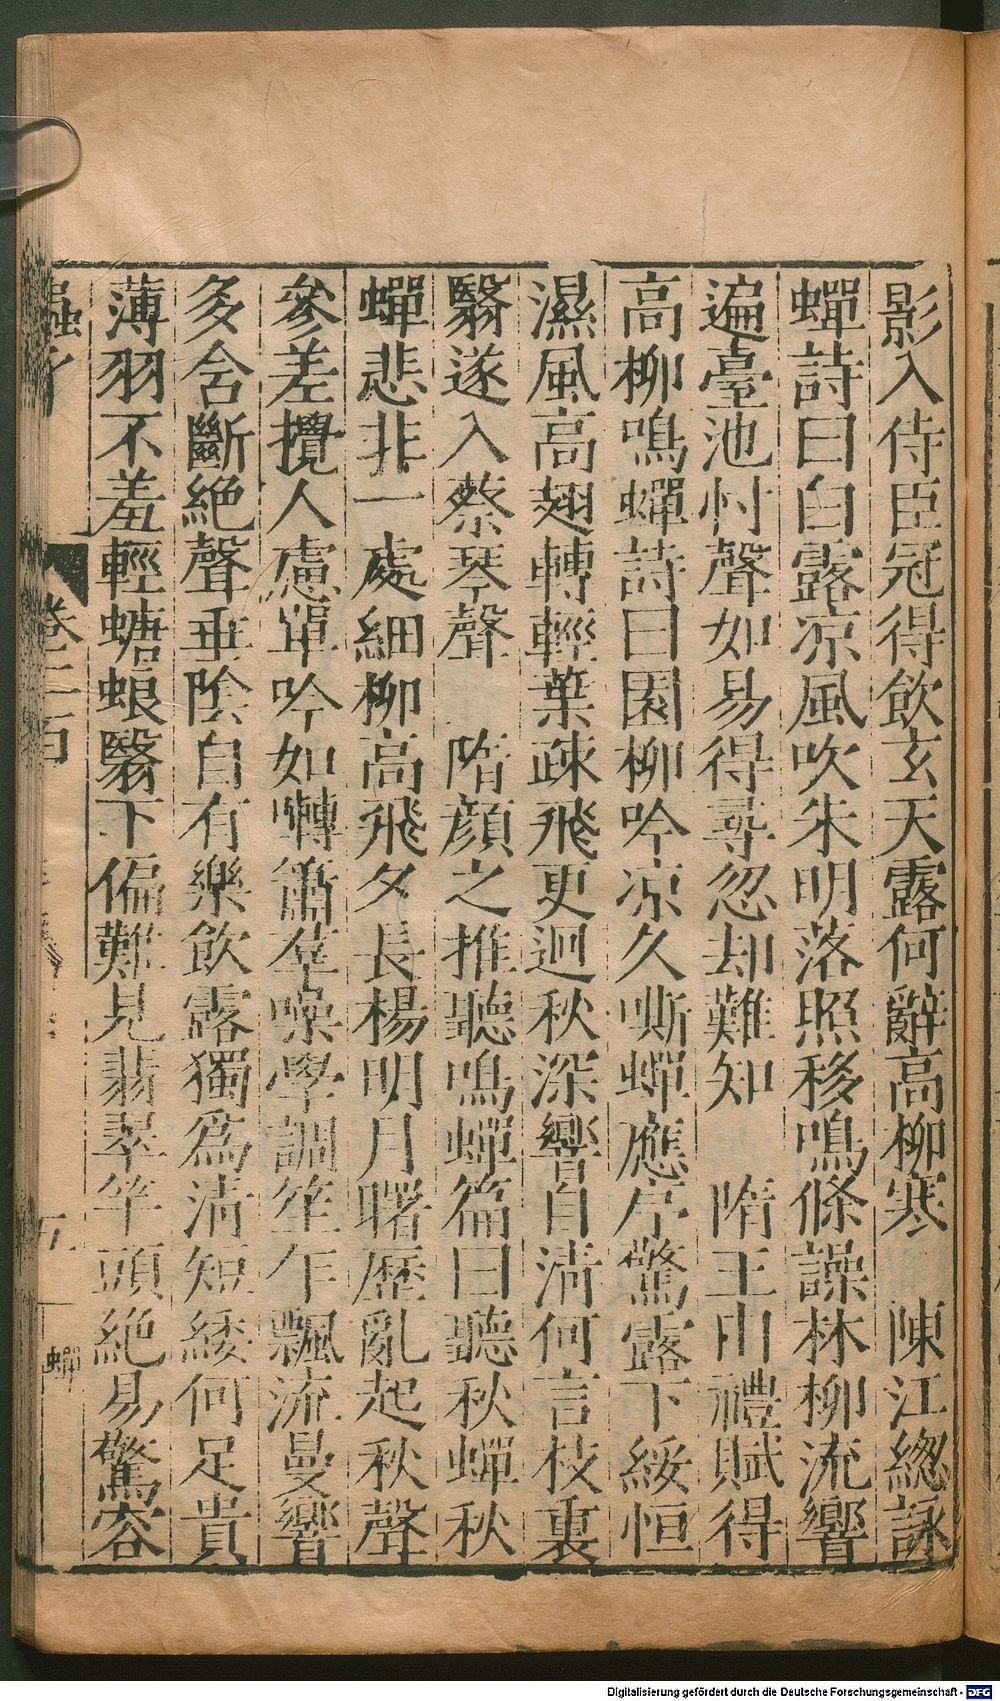 影入侍臣冠得飲玄天露何辭高柳寒　陳江總詠
蟬詩曰白露凉風吹朱明落照移鳴條譟林柳流響
遍臺池忖聲如易得尋忽却難知　隋王由禮賦得
高柳鳴蟬詩曰園柳吟凉久嘶蟬應序驚露下綏恒
濕風高翅轉輕葉疎飛更迥秋深響自清何言枝裏
翳遂入蔡琴聲　隋顔之推聽鳴蟬篇曰聽秋蟬秋
蟬悲非一處細柳高飛夕長楊明月曙歷亂起秋聲
參差攪人慮單吟如囀簫羣噪學調笙乍飄流曼響
多含斷絶聲垂陰自有樂飲露獨爲清短緌何足貴
薄羽不羞輕螗蜋翳下偏難見翡翠竿頭絶易驚容
卷二百
五
蟬
Digitalisierung gefördert durch die Deutsche Forschungsgemeinschaft - DFG